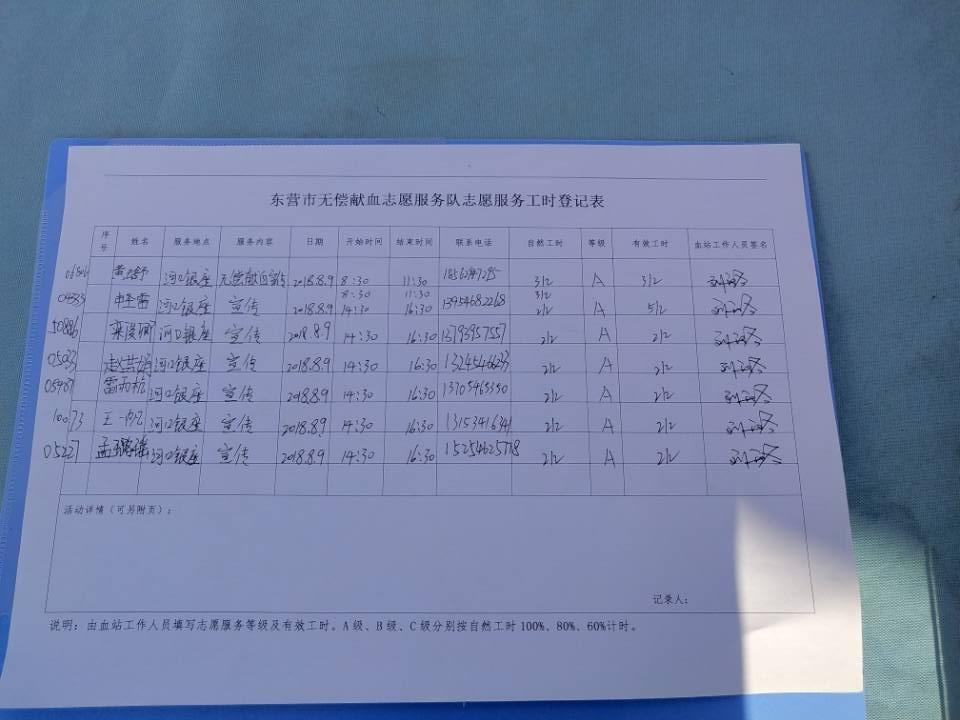 东营市无偿献血志愿服务队志愿服务工时登记表
序号 姓名 服务地点 服务内容 日期 开始时间 结束时间 联系电话 自然工时 等级 有效工时 血站工作人员签名
河口银座 无偿献血宣传 2018.8.9 8:30 11:30 3h A 3h
8:30 11:30 3h
河口银座 宣传 2018.8.9 14:30 16:30 13954682268 2h A 5h
50886 河口银座 宣传 2018.8.9 14:30 16:30 13793957557 2h A 2h
河口银座 宣传 2018.8.9 14:30 16:30 2h A 2h
河口银座 宣传 2018.8.9 14:30 16:30 13705465350 2h A 2h
王一凡 河口银座 宣传 2018.8.9 14:30 16:30 13153416341 2h A 2h
05227 河口银座 宣传 2018.8.9 14:30 16:30 2h A 2h
活动详情（可另附页）：
记录人：
说明：由血站工作人员填写志愿服务等级及有效工时。A级、B级、C级分别按自然工时100%、80%、60%计时。